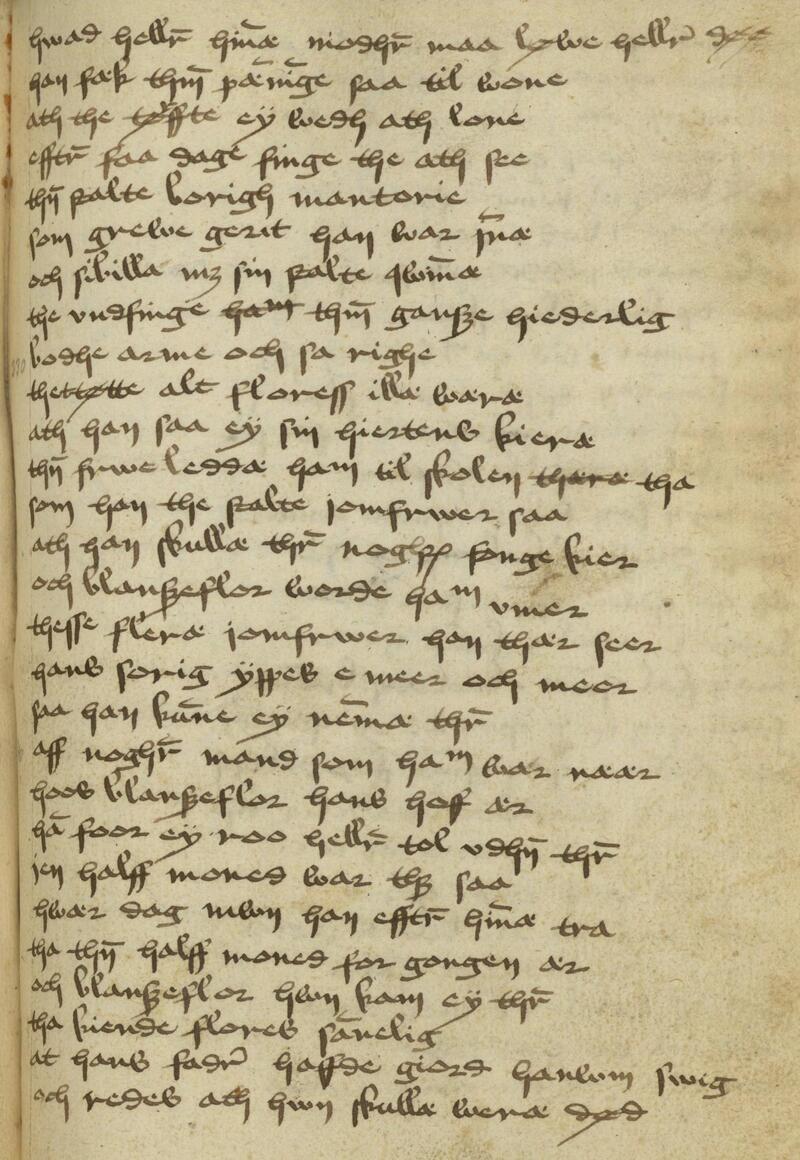 hwad hellr̄ hm̄æ modhr̄ maa løwe hellr̄ døø
han fæk thm̄ pæn̄īge saa til wone
ath the tørffte ey wedh ath lone
efftr̄ faa dage finge the ath see
thn̄ stalte borigh mantorie
som grewe gerit han war jn̄æ
och sibilla mȝ sin stalte qwin̄æ
the vndfinge ham thm̄ gansze hiederlig
bodhe arme och sa righe
thettøtte alt floress illæ wæræ
ath han saa ey sin hiertens kieræ
thn̄ frwe leddæ ham til skolen thæræ tha
som han the stalte iomfrwer saa
ath han skullæ thr̄ noghr̄ fonge kier
och blanszeflor worde ham vmer
thesse fleræ iomfrwer han thær seer
hans sorig yppes e meer och meer
saa han kun̄e ey nem̄æ thr̄
aff noghr̄ mand som ham war næær
hoos blanszeflor hans hoff ær
hā foor ey roo hellr̄ tol vdhn̄ thr̄
jen halff moned war thȝ saa
hwær dag mwn han efftr̄ hm̄æ tra
tha thn̄ halff moned for gongen ær
och blanszeflor hwn kam ey thr̄
tha kiende flores san̄elig
at hans fadr̄ haffde giord hanwom swig
och redes ath hwn skullæ weræ død